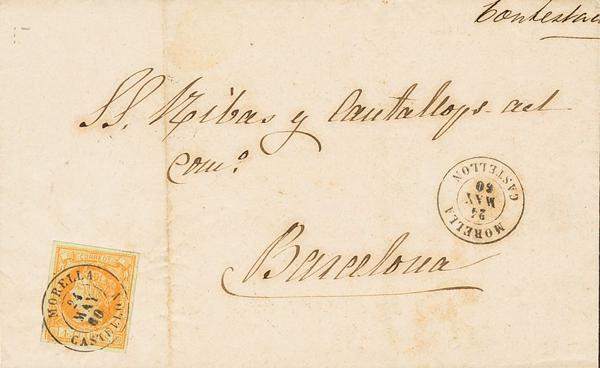 Contestad
SS. Ribas y Cantallops del
com.o
Barcelona
MORELLA
24
MAY
60
CASTELLON
CORREOS
MORELLA
24
MAY
60
CASTELLON